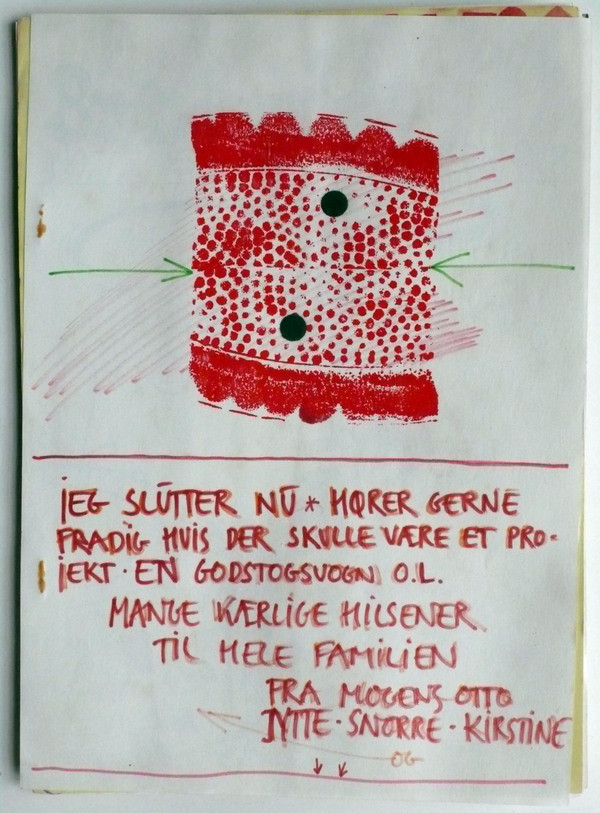 jEG SLUTTER NU * HØRER GERNE
FRA DIG HVIS DER SKULLE VÆRE ET PRO-
jEKT · EN GODSTOGSVOGN O.L.
MANGE KÆRLIGE HILSENER
TIL HELE FAMILIEN
FRA MOGENS OTTO
JYTTE · SNORRE · KIRSTINE
OG